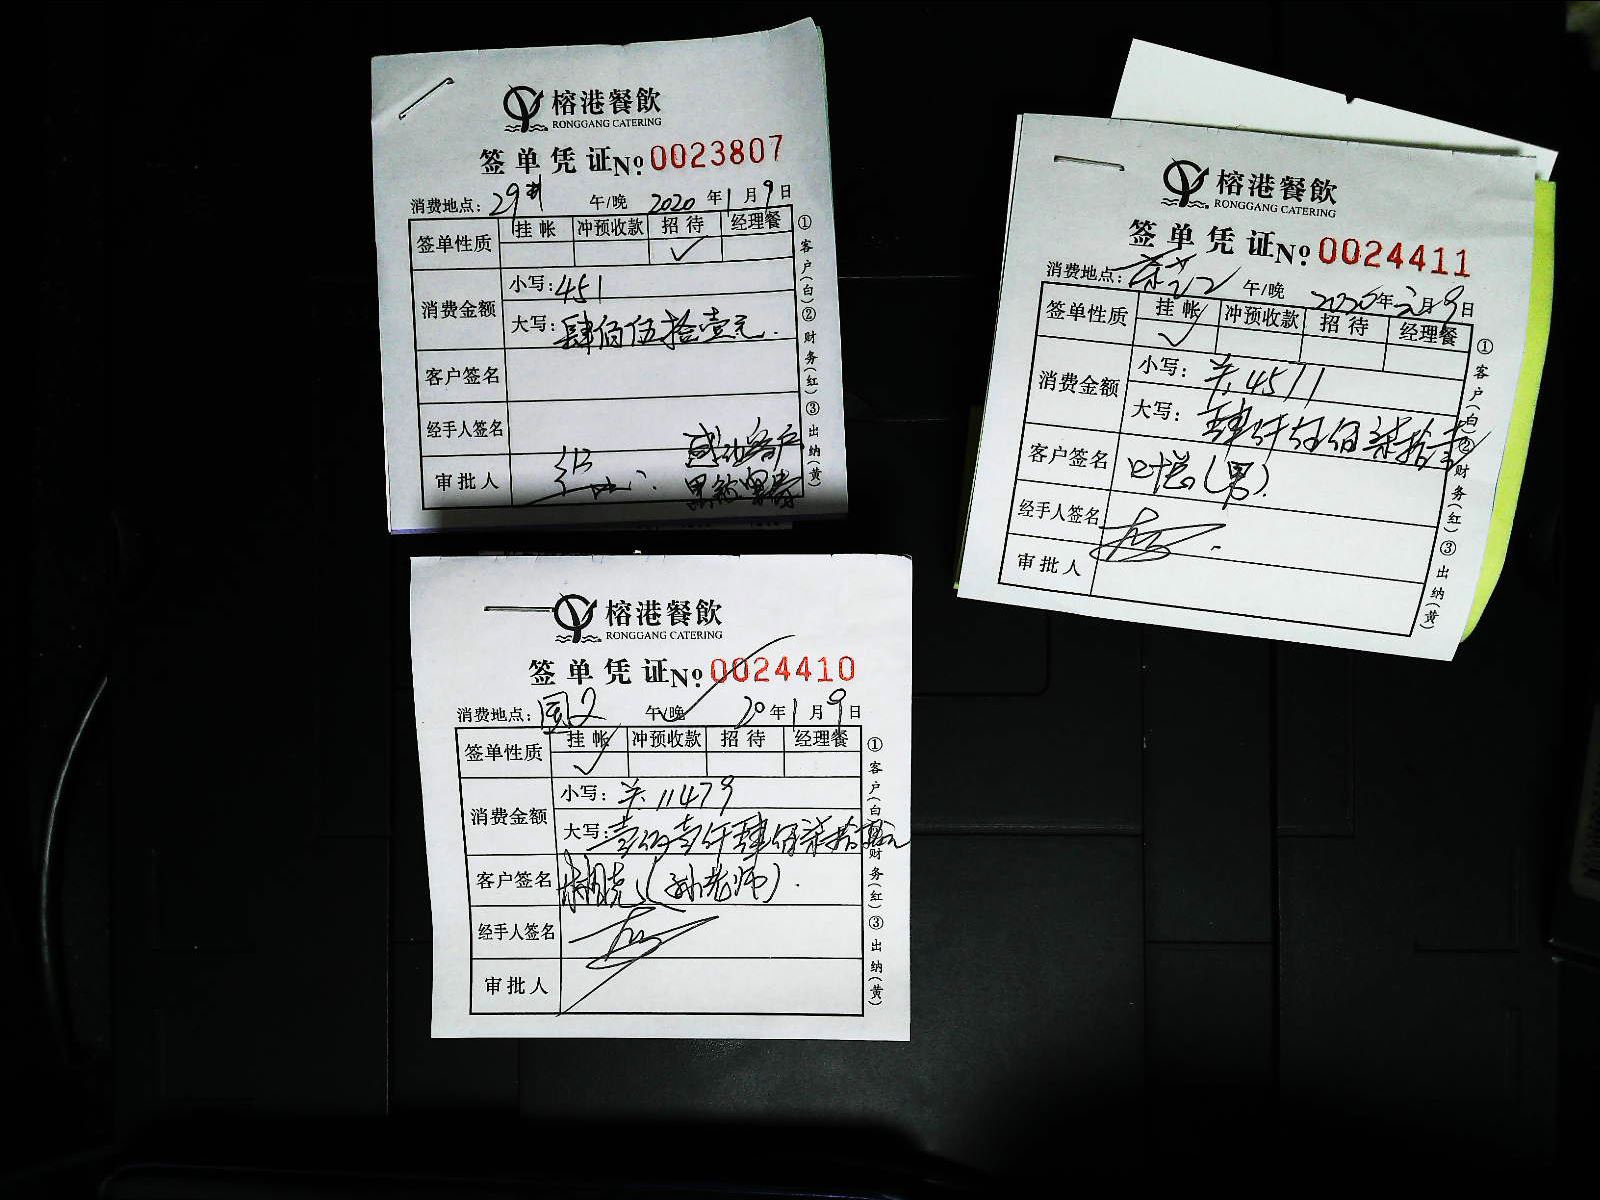 榕港餐飲
RONGGANG CATERING
签单凭证No.0023807
消费地点：29# 午/晚 2020年1月9日
签单性质 挂帐 冲预收款 招待 经理餐
✓
消费金额 小写：451
大写：肆佰伍拾壹元.
客户签名
经手人签名
感动客户
审批人
①客户(白)②财务(红)③出纳(黄)
榕港餐飲
RONGGANG CATERING
签单凭证No.0024411
消费地点： 午/晚 2020年 月9日
签单性质 挂帐 冲预收款 招待 经理餐
✓
消费金额 小写：
大写：肆仟伍佰柒拾壹
客户签名 (男).
经手人签名
审批人
①客户(白)②财务(红)③出纳(黄)
榕港餐飲
RONGGANG CATERING
签单凭证No.0024410
消费地点： 午/晚 20年1月9日
签单性质 挂帐 冲预收款 招待 经理餐
✓
消费金额 小写：11479
大写：壹仟肆佰柒拾
客户签名 (孙老师).
经手人签名
审批人
①客户(白)②财务(红)③出纳(黄)